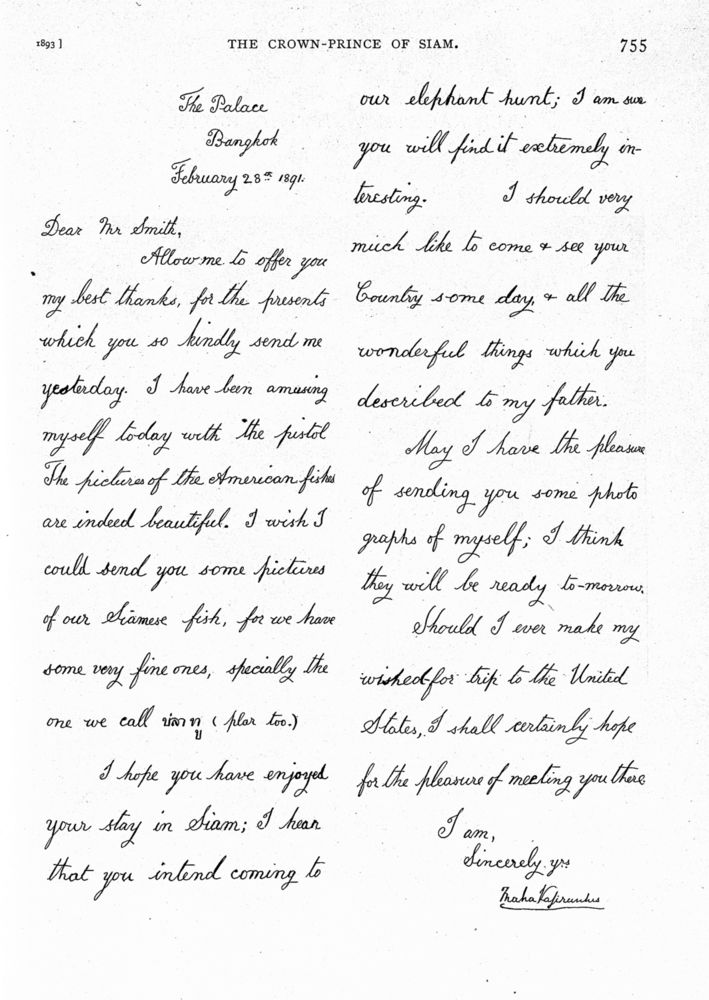 1893]
THE CROWN-PRINCE OF SIAM.
755
The Palace
Bangkok
February 28th 1891.
Dear Mr Smith,
Allow me to offer you
my best thanks, for the presents
which you so kindly send me
yesterday. I have been amusing
myself today with the pistol
The pictures of the American fishes
are indeed beautiful. I wish I
could send you some pictures
of our Siamese fish, for we have
some very fine ones, specially the
one we call ปลาทู (plar too.)
I hope you have enjoyed
your stay in Siam; I hear
that you intend coming to
our elephant hunt; I am sure
you will find it extremely in-
teresting. I should very
much like to come & see your
Country some day, & all the
wonderful things which you
described to my father.
May I have the pleasure
of sending you some photo
graphs of myself; I think
they will be ready to-morrow.
Should I ever make my
wished for trip to the United
States, I shall certainly hope
for the pleasure of meeting you there
I am,
Sincerely yrs
Maha Vajirunhis